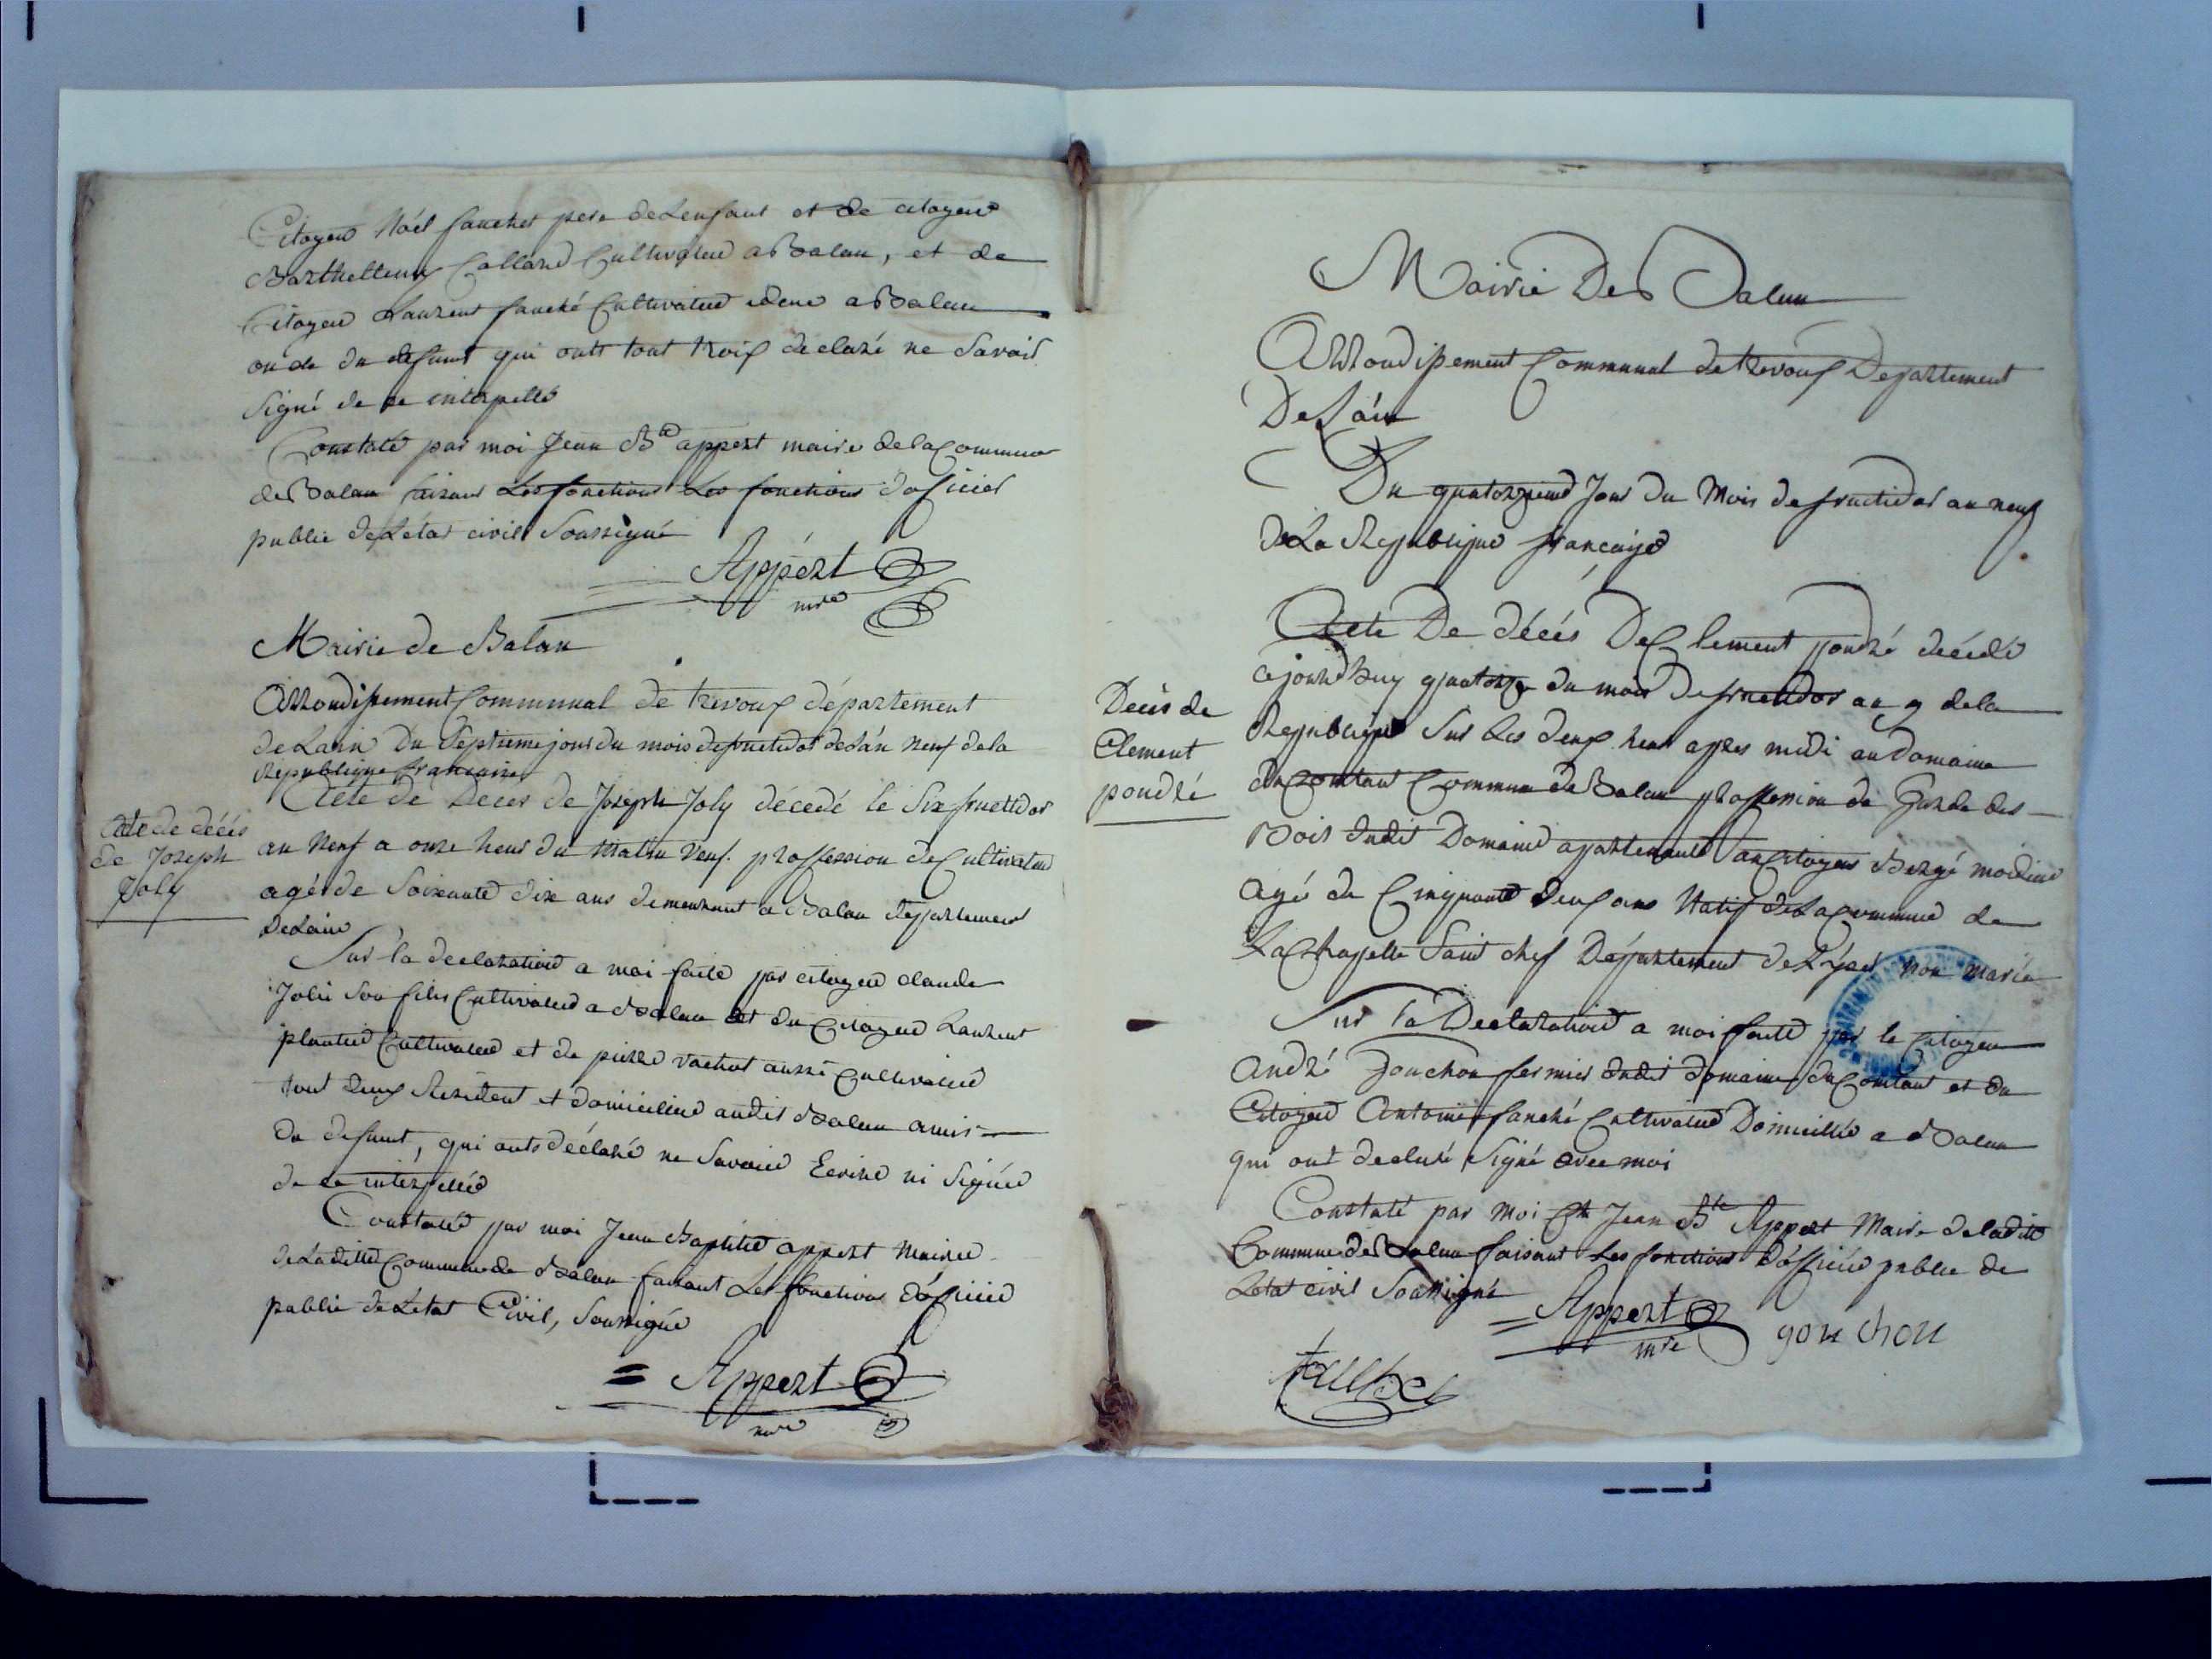 Citoyen Noël fauchet pere de Lenfant et de citoyen
Barthellemy Calland Cultivateur a Balan, et de
Citoyen Laurent fauché Cultivateur idem a Balan
oncle du defunt qui onts tout trois declaré ne Savoir
Signé de ce interpellé
Constaté par moi Jean Bte appert maire de la Commune
de Balan faisant Les fonctions Les fonctions d'officier
public de Létat civil Soussigné
Appert
mre
Mairie de Balan
Arrondissement Communal de trevoux département
de Lain Du Septieme jour du mois de fructidor de Lan neuf de la
Republique francaise
Acte de décés
de Joseph
Joly
Acte de Décés de Joseph Joly décedé le Six fructidor
an Neuf a onze heur du matin Neuf. proffession de Cultivateur
agé de Soixante dix ans demeurant a Balan Departement
de Lain
Sur la declaration a moi faite par citoyen claude
Jolie Son fils Cultivateur a Balan et du Citoyen Laurent
plantier Cultivateur et de pierre vachot aussi Cultivateur
tout deux Résident et domicilier audit Balan amis
du defunt, qui onts déclaré ne Savoir Ecrire ni Signer
de ce interpellé
Constaté par moi Jean Baptiste appert Maire
de Laditte Commune de Balan faisant Les fonctions d'officier
public de Létat Civil, Soussigné
Appert
mre
Mairie De Balan
Arrondissement Communal de trevoux Departement
De Lain
Du quatorzieme Jour du Mois de fructidor an neuf
de La Republique francaise
Décés de
Clement
poudré
Acte De décés De Clement poudré décédé
ajourdhuy quatorze du mois de fructidor an 9 de la
Republique Sur Les deux heur apres midi au domaine
du contant Commune de Balan proffession de Garde des
Bois dudit Domaine appartenant au Citoyen Bergé
agé de Cinquante deux ans Natif de La Commune de
La Chapelle Saint chef Département de Lyser non marié
Sur La Declaration a moi faite par le Citoyen
André Gouchon fermier dudit domaine du Contant et du
Citoyen Antoine fauché Cultivateur Domicillié a Balan
qui ont declaré Signé avec moi
Constaté par Moi Jean Bte Appert Maire de laditte
Commune de Balan faisant Les fonctions d'officier public de
Letat civil Soussigné
Appert
mre
gouchou